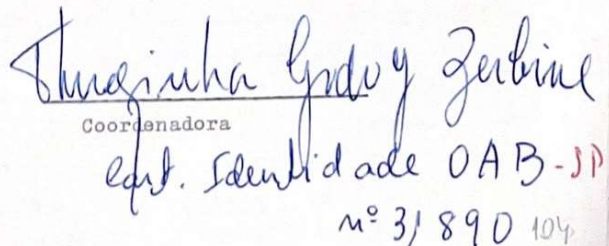 Therezinha Godoy Zerbine
Coordenadora
cart. Identidade OAB-SP
nº 31890 104